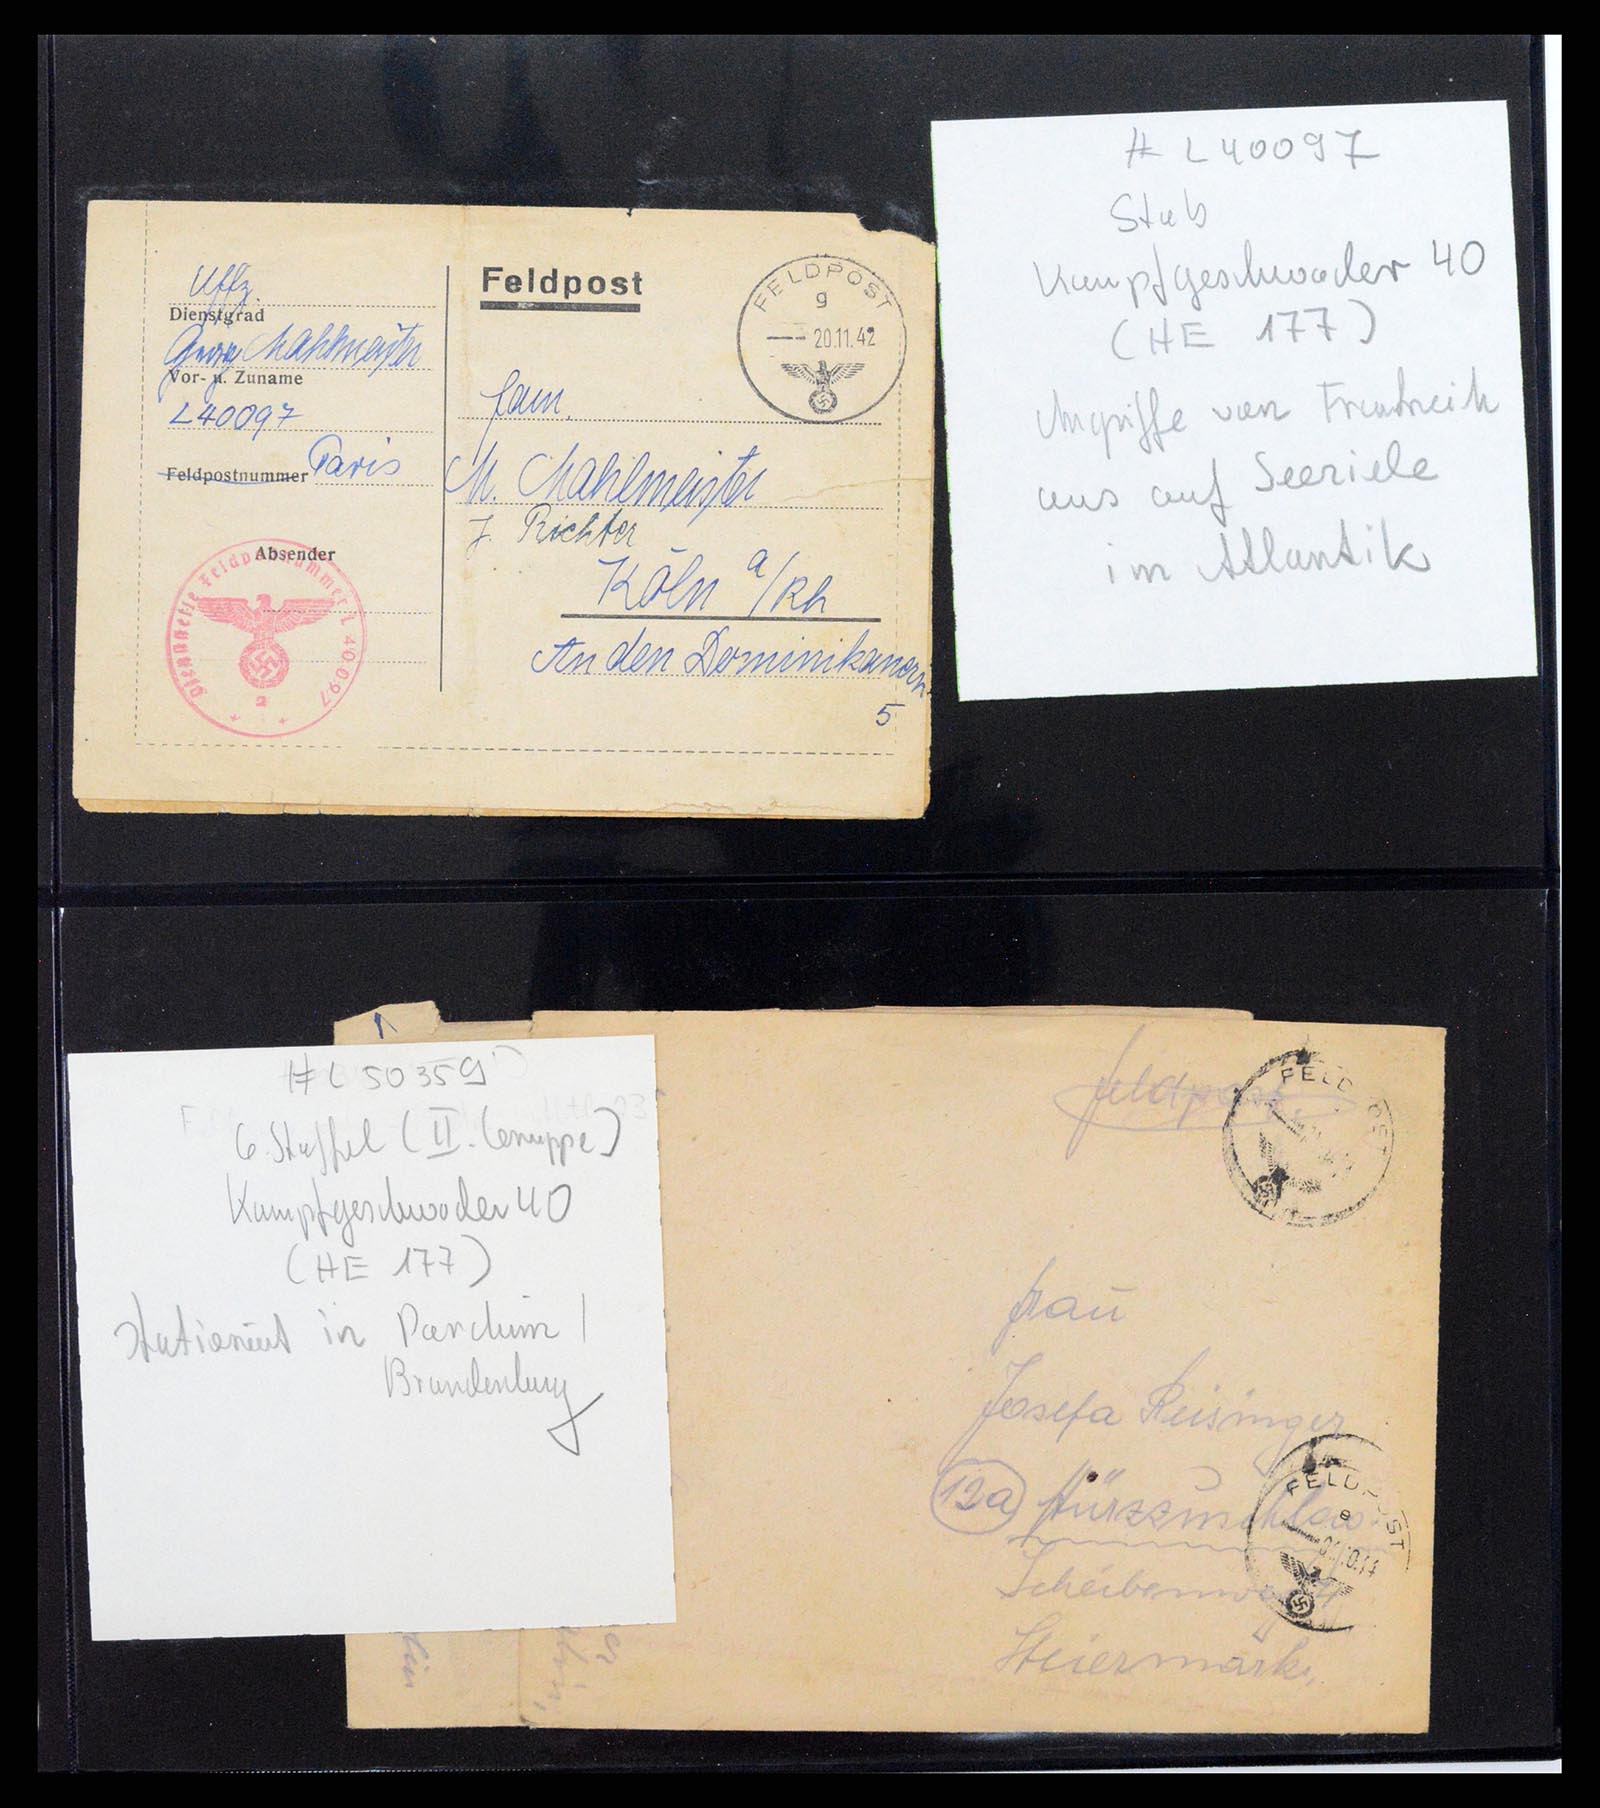 Uffz.
Dienstgrad
Georg Mahlmeister
Vor- u. Zuname
L40097
Feldpostnummer Paris
Absender
Dienststelle Feldpostnummer L 40097
Feldpost
FELDPOST
g
20.11.42
Fam.
M. Mahlmeister
J. Richter
Köln a/Rh
An den Dominikanern
5
# L 40097
Stab
Kampfgeschwader 40
(HE 177)
Angriffe von Frankreich
aus auf Seeziele
im Atlantik
# L 50359
6. Staffel (II. Gruppe)
Kampfgeschwader 40
(HE 177)
stationiert in Parchim /
Brandenburg
Feldpost
FELDPOST
Frau
Josefa Reisinger
12a Mürzzuschlag
FELDPOST
e
Steiermark